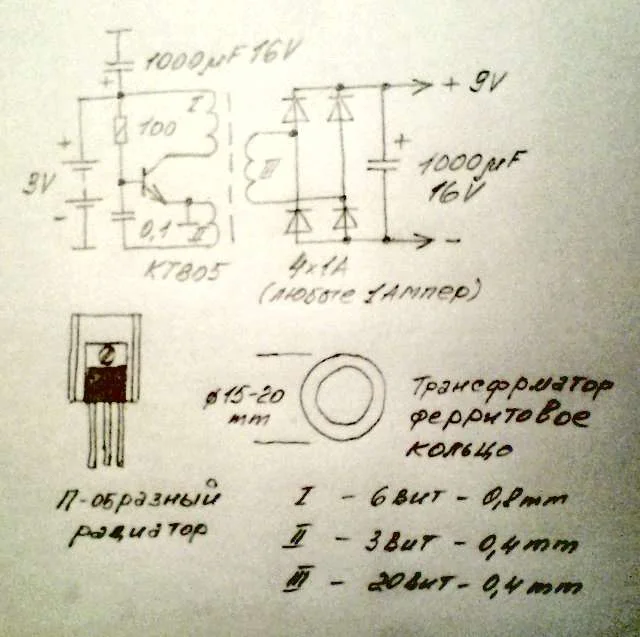 1000µF 16V
+
I
+ 9V
100
+
+
3V
III
1000µF
16V
-
0,1
II
-
КТ805
4x1А
(любые 1Ампер)
ø15-20
mm
Трансфрматор
ферритовое
кольцо
П-образный
радиатор
I - 6вит - 0,8mm
II - 3вит - 0,4mm
III - 20вит - 0,4mm